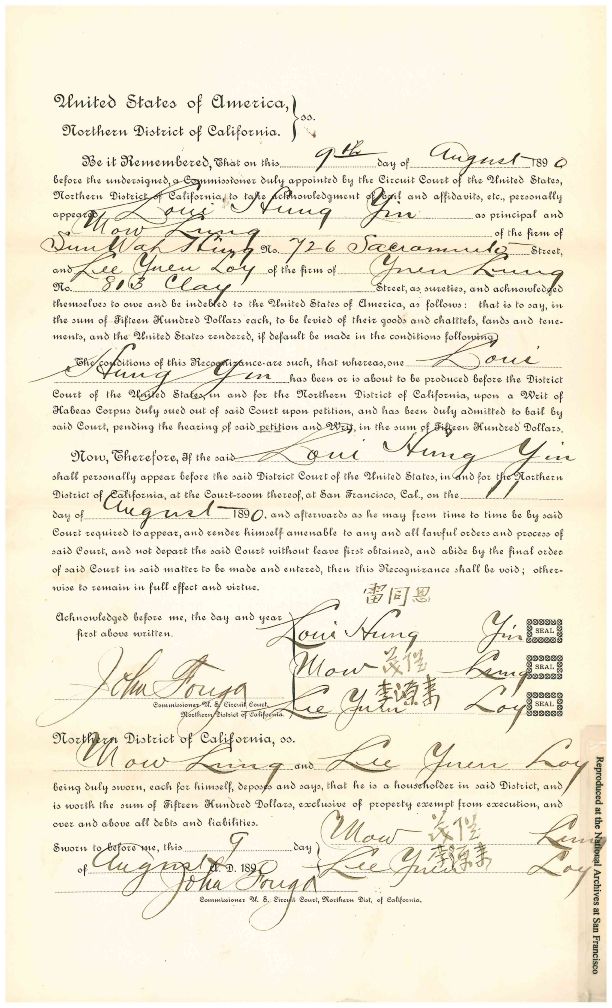 United States of America,
Northern District of California. } ss.
Be it Remembered, That on this 9th day of August 1890
before the undersigned, a Commissioner duly appointed by the Circuit Court of the United States,
Northern District of California, to take acknowledgment of bail and affidavits, etc., personally
appeared Loui Hung Yin as principal and
Mow Lung of the firm of
Sun Wah Hung No. 726 Sacramento Street,
and Lee Yuen Loy of the firm of Yuen Lung
No. 813 Clay Street, as sureties, and acknowledged
themselves to owe and be indebled to the United States of America, as follows: that is to say, in
the sum of Fifteen Hundred Dollars each, to be levied of their goods and chatttels, lands and tene-
ments, and the United States rendered, if default be made in the conditions following.
The conditions of this Recognizance are such, that whereas, one Loui
Hung Yin has been or is about to be produced before the District
Court of the United States, in and for the Northern District of California, upon a Writ of
Habeas Corpus duly sued out of said Court upon petition, and has been duly admitted to bail by
said Court, pending the hearing of said petition and Writ, in the sum of Fifteen Hundred Dollars.
Now, Therefore, If the said Loui Hung Yin
shall personally appear before the said District Court of the United States, in and for the Northern
District of California, at the Court-room thereof, at San Francisco, Cal., on the 11
day of August 1890, and afterwards as he may from time to time be by said
Court required to appear, and render himself amenable to any and all lawful orders and process of
said Court, and not depart the said Court without leave first obtained, and abide by the final order
of said Court in said matter to be made and entered, then this Recognizance shall be void; other-
wise to remain in full effect and virtue.
雷同恩
Acknowledged before me, the day and year
first above written.
Loui Hung Yin SEAL
Mow Lung SEAL
Lee Yuen Loy SEAL
John Fouga
Commissioner U. S. Circuit Court,
Northern District of California.
Northern District of California, ss.
Mow Lung and Lee Yuen Loy
being duly sworn, each for himself, deposes and says, that he is a householder in said District, and
is worth the sum of Fifteen Hundred Dollars, exclusive of property exempt from execution, and
over and above all debts and liabilities.
Sworn to before me, this 9 day
of August A. D. 189
Mow Lung
Lee Yuen Loy
John Fouga
Commissioner U. S. Circuit Court, Northern Dist. of California.
Reproduced at the National Archives at San Francisco